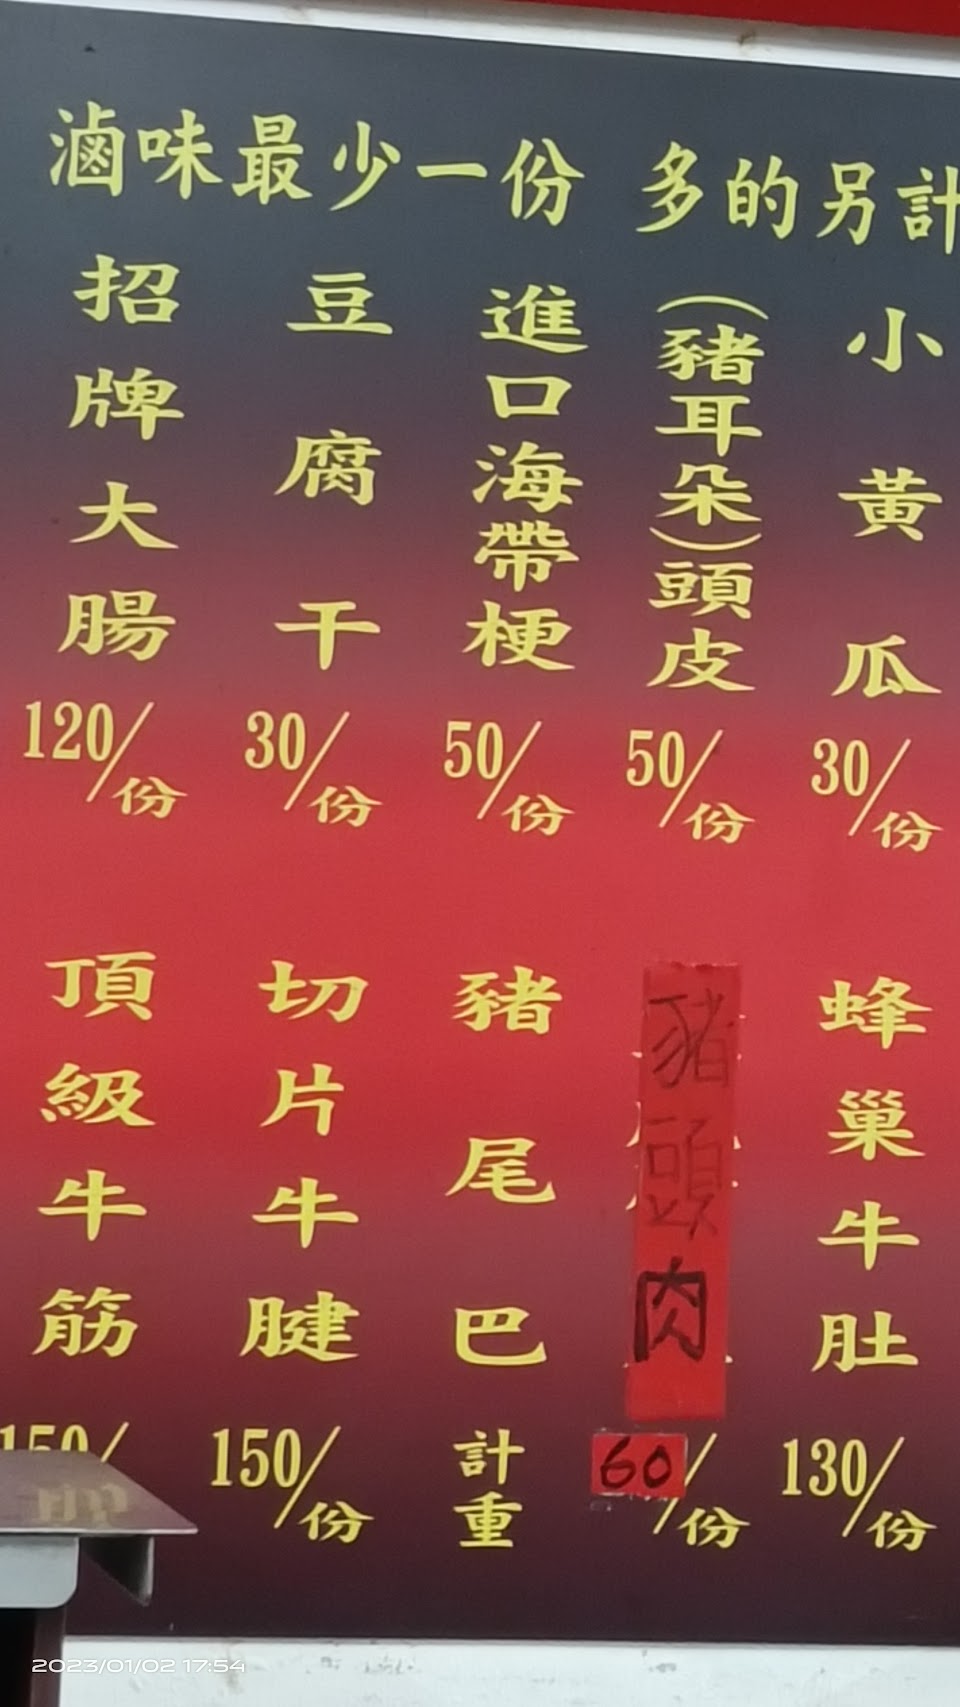 滷味最少一份 多的另計
招牌大腸 120/份
豆腐干 30/份
進口海帶梗 50/份
(豬耳朵)頭皮 50/份
小黃瓜 30/份
頂級牛筋 150/
切片牛腱 150/份
豬尾巴 計重
豬頭肉 60/份
蜂巢牛肚 130/份
2023/01/02 17:54